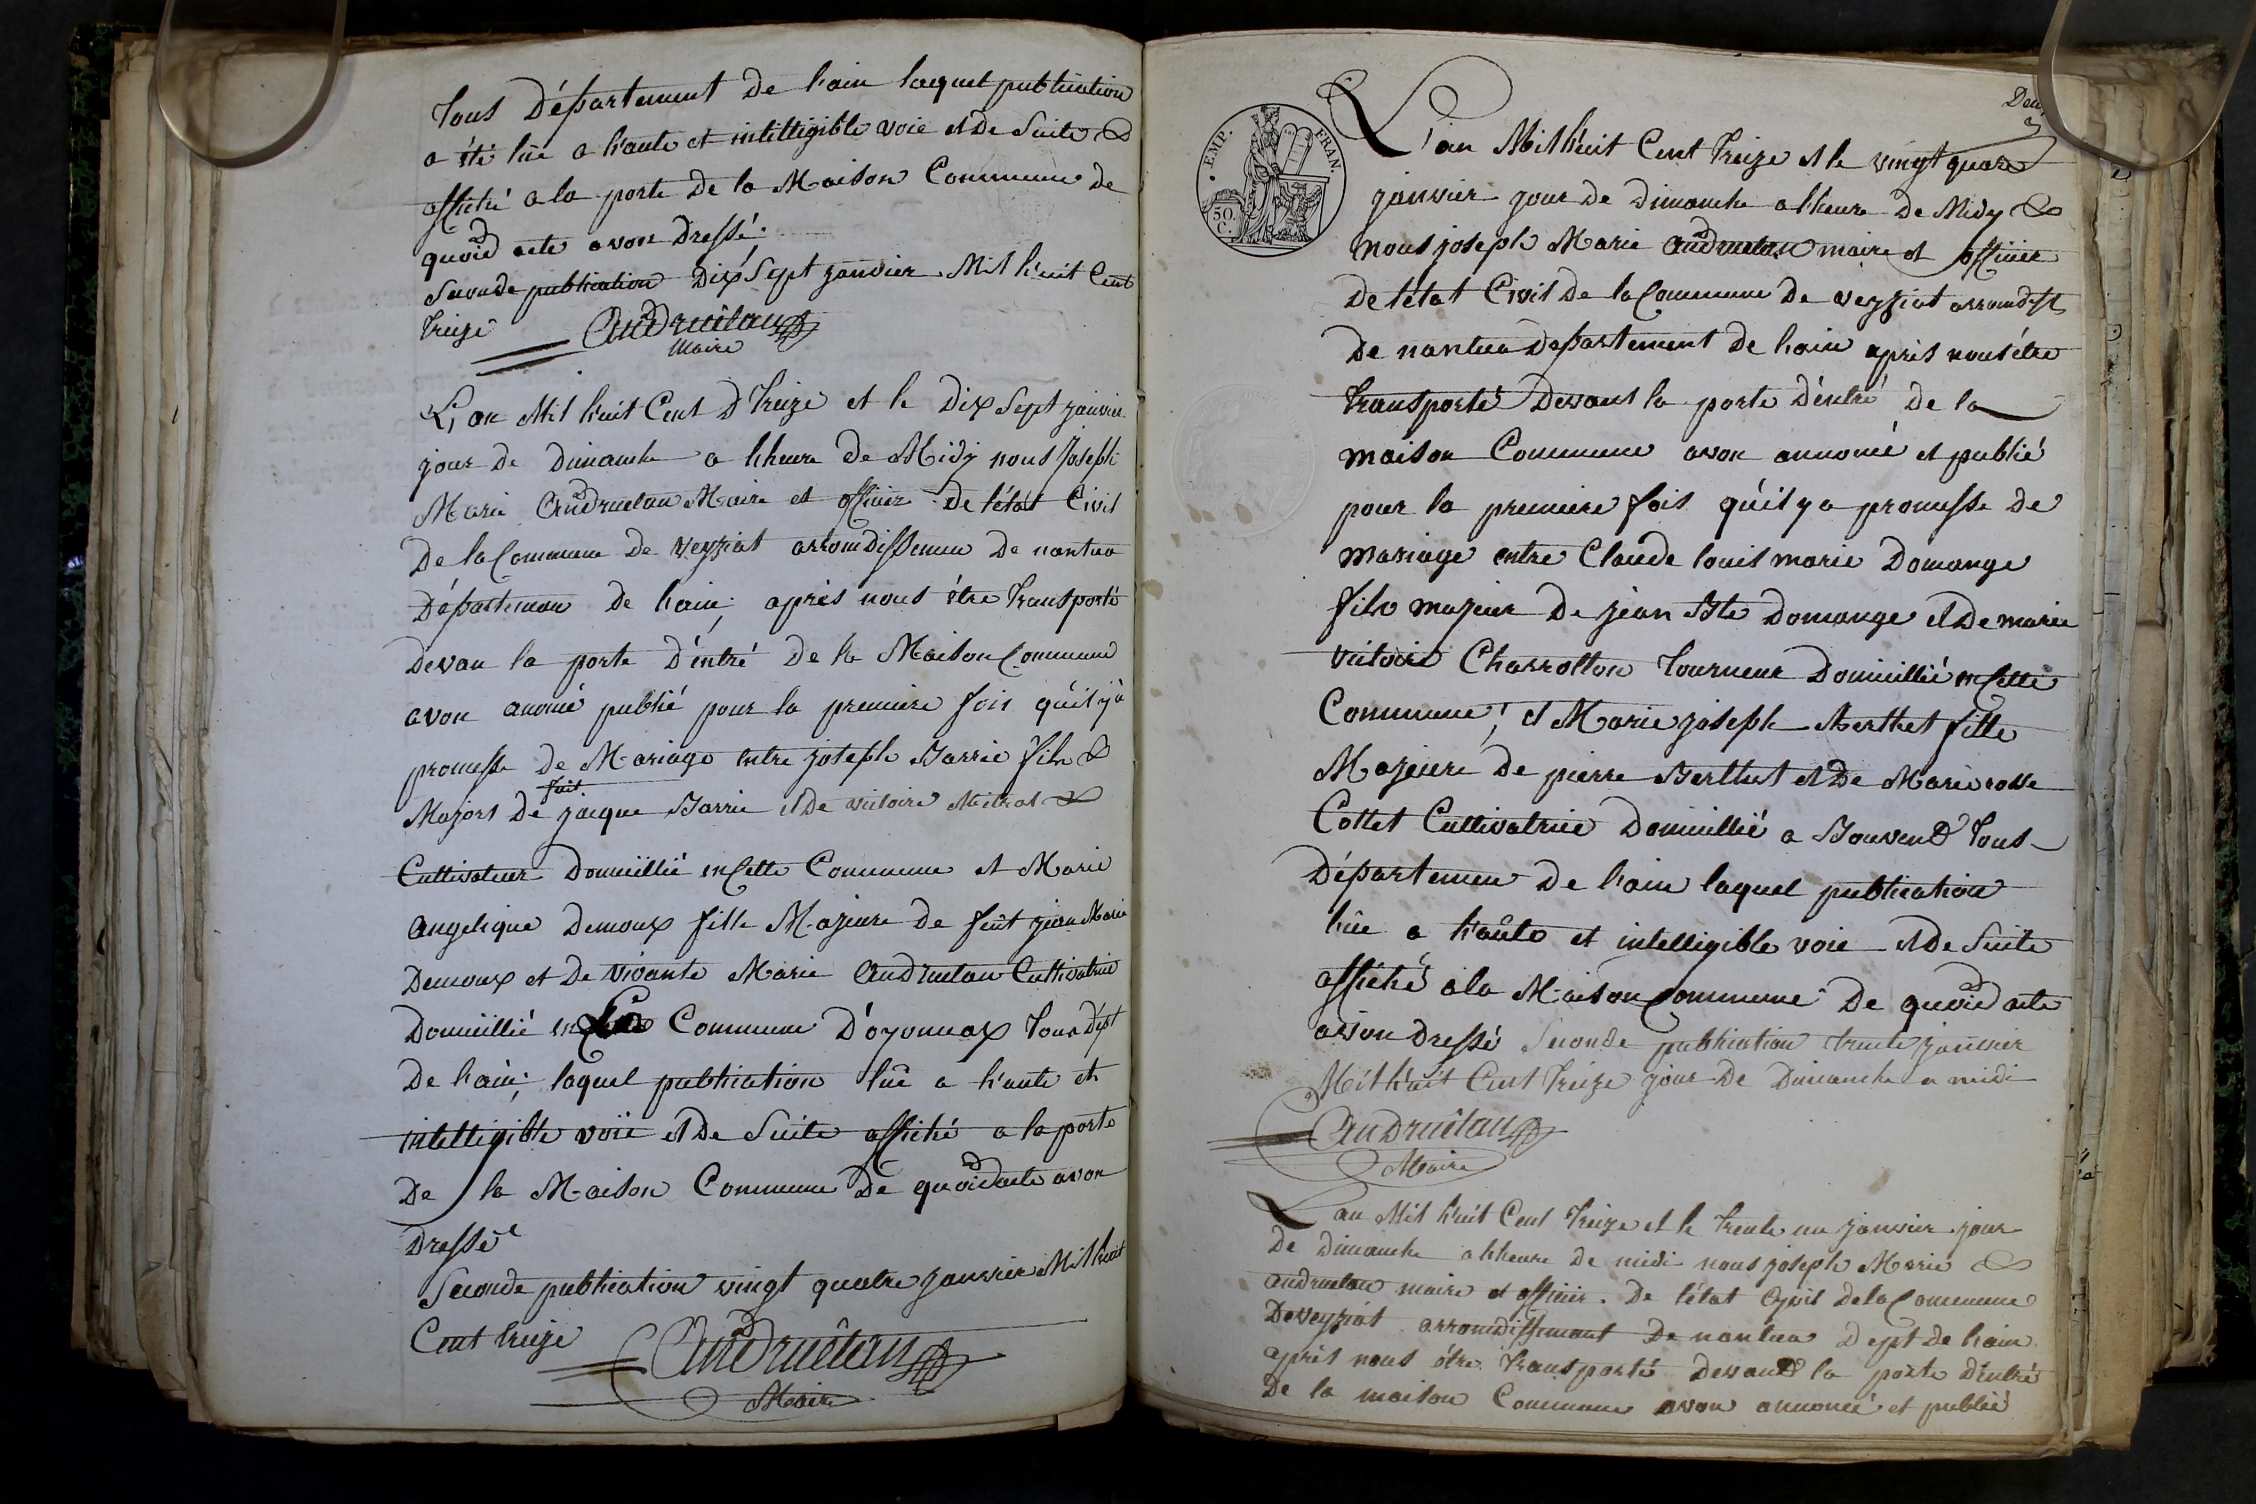 tous Département de l'ain laquel publication
a été lüe a haute et intelligible voie et de suite
affiché a la porte de la Maison Commune de
quoid acte avon Dressé.
Seconde publication Dix Sept janvier Mil huit Cent
treize Andruétan
Maire
L'an Mil huit Cent d treize et le Dix Sept janvier
jour de Dimanche a lheure de Midy nous Joseph
Marie Andruetan Maire et officier de l'état Civil
De la Commune de Veyziat arrondissemen de nantua
Département de l'ain, après nous être transporté
Devan la porte D'entré de la Maison Commune
avon anoncé publié pour la premiere fois qu'il y a
promesse de Mariage entre joseph Barrie fils
Majort De fut jacque Barrie et De victoire Mitral
Cultivateur Domicillié en Cette Commune et Marie
Angelique Demoux fille Majeure de feüt jean Marie
Demoux et De vivante Marie Andruetan Cultivatrice
Domicillié en La Commune D'oyonnax tous Dépt
De l'ain, laquel publication lüe a haute et
intelligible voië et De Suite affiché a la porte
De la Maison Commune De quoid acte avon
Dressé
Seconde publication vingt quatre janvier Mil huit
Cent treize Andruétan
Maire
EMP. FRAN.
50.
C.
Deu
L'an Mil huit Cent treize et le vingt quatre
janvier jour de Dimanche a lheure De Midy
nous joseph Marie Andruetan maire et officier
De l'état Civil De la Commune De veyziat arrondist
De nantua Département de l'ain après nous être
transporté Devant la porte D'entré De la
maison Commune avon annoncé et publié
pour la premiere fois qu'il y a promesse de
mariage entre Claude louis marie Domange
fils majeur De jean Bte Domange et De marie
victoire Charrolton tourneur Domicillié en Cette
Commune, et Marie joseph Berthet fille
Majeure De pierre Berthet et De Marie rosse
Collet Cultivatrice Domicillié a Bouvend tous
Départemen De l'ain laquel publication
lüe a haute et intelligible voie et De Suite
affiché a la Maison Commune De quoid acte
avon Dressé Seconde publication trente janvier
Mil huit Cent treize jour De Dimanche a midi
Andruétan
Maire
L'an Mil huit Cent treize et le trente un janvier jour
De Dimanche a lheure de midi nous joseph Marie
Andruetan maire et officier De l'état Civil De la Commune
De veyziat arrondissemant De nantua Dept de l'ain
après nous être transporté Devand la porte D'entré
De la maison Commune avon annoncé et publié